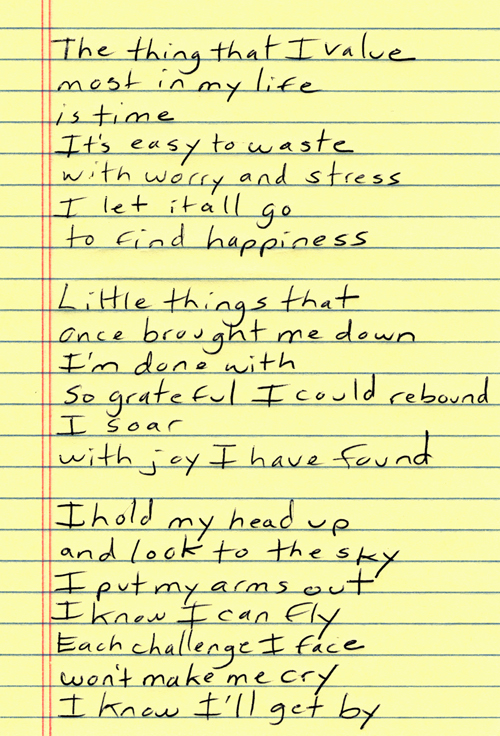 The thing that I value
most in my life
is time
It's easy to waste
with worry and stress
I let it all go
to find happiness
Little things that
once brought me down
I'm done with
So grateful I could rebound
I soar
with joy I have found
I hold my head up
and look to the sky
I put my arms out
I know I can fly
Each challenge I face
won't make me cry
I know I'll get by